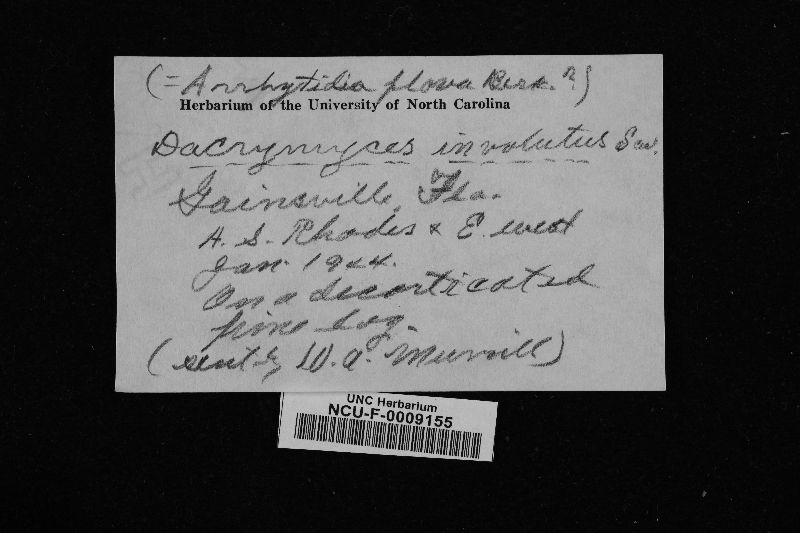 (= Arrhytidia flava Berk. ?)
Herbarium of the University of North Carolina
Dacrymyces involutus Sw.
Gainsville, Fla.
A. S. Rhodes & E. West
Jan. 1944.
On a decorticated
pine log.
(sent by W. A. Murrill)
UNC Herbarium
NCU-F-0009155